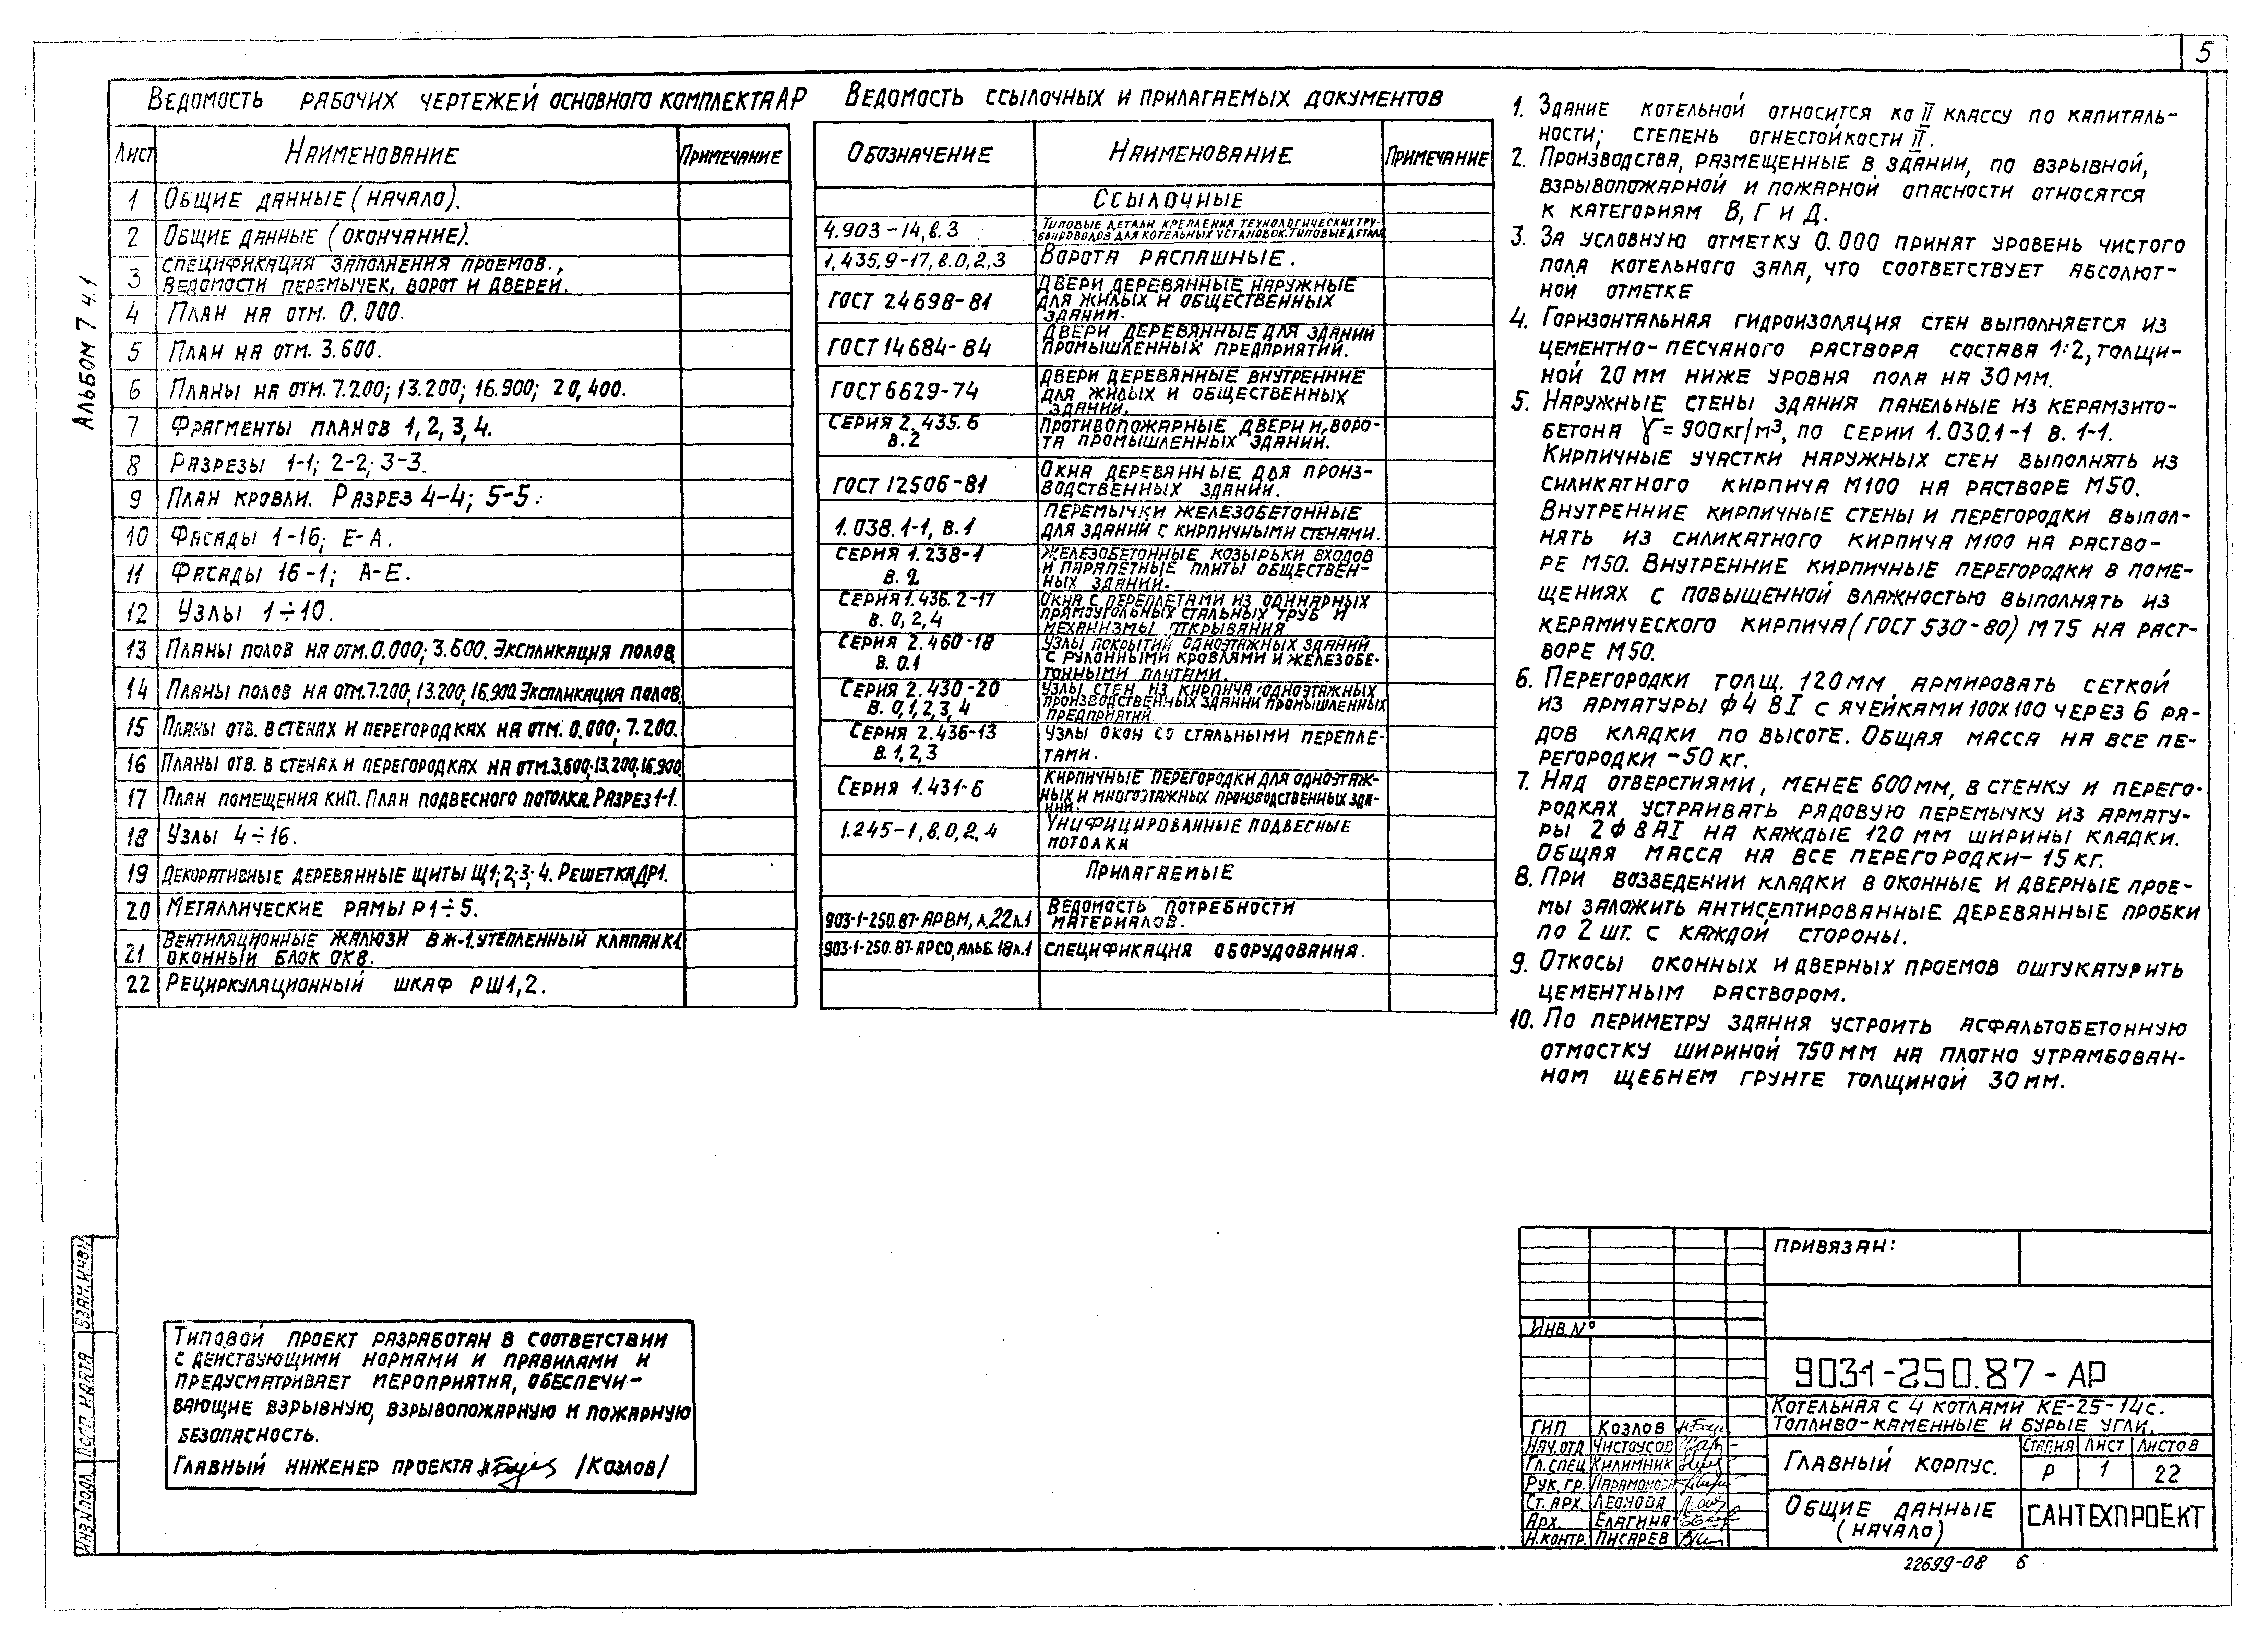 5
Альбом 7 ч.1
Ведомость рабочих чертежей основного комплекта АР
Лист Наименование Примечание
1 Общие данные (начало).
2 Общие данные (окончание).
3 Спецификация заполнения проемов.,
Ведомости перемычек, ворот и дверей.
4 План на отм. 0.000.
5 План на отм. 3.600.
6 Планы на отм. 7.200; 13.200; 16.900; 20,400.
7 Фрагменты планов 1, 2, 3, 4.
8 Разрезы 1-1; 2-2; 3-3.
9 План кровли. Разрез 4-4; 5-5.
10 Фасады 1-16; Е-А.
11 Фасады 16-1; А-Е.
12 Узлы 1÷10.
13 Планы полов на отм. 0.000; 3.600. Экспликация полов.
14 Планы полов на отм. 7.200; 13.200; 16.900. Экспликация полов.
15 Планы отв. в стенах и перегородках на отм. 0.000; 7.200.
16 Планы отв. в стенах и перегородках на отм. 3.600; 13.200; 16.900.
17 План помещения КИП. План подвесного потолка. Разрез 1-1.
18 Узлы 4÷16.
19 Декоративные деревянные щиты Щ1; 2; 3; 4. Решетка ДР1.
20 Металлические рамы Р1÷5.
21 Вентиляционные жалюзи ВЖ-1. Утепленный клапан К1.
Оконный блок ОК8.
22 Рециркуляционный шкаф РШ1,2.
Ведомость ссылочных и прилагаемых документов
Обозначение Наименование Примечание
Ссылочные
4.903-14, в.3 Типовые детали крепления технологических тру-
бопроводов для котельных установок. Типовые детали
1.435.9-17, в.0,2,3 Ворота распашные.
ГОСТ 24698-81 Двери деревянные наружные
для жилых и общественных
зданий.
ГОСТ 14684-84 Двери деревянные для зданий
промышленных предприятий.
ГОСТ 6629-74 Двери деревянные внутренние
для жилых и общественных
зданий.
Серия 2.435.6 Противопожарные двери и воро-
в.2 та промышленных зданий.
ГОСТ 12506-81 Окна деревянные для произ-
водственных зданий.
1.038.1-1, в.1 Перемычки железобетонные
для зданий с кирпичными стенами.
Серия 1.238-1 Железобетонные козырьки входов
в.2 и парапетные плиты обществен-
ных зданий.
Серия 1.436.2-17 Окна с переплетами из одинарных
в. 0,2,4 прямоугольных стальных труб и
механизмы открывания
Серия 2.460-18 Узлы покрытий одноэтажных зданий
в. 0.1 с рулонными кровлями и железобе-
тонными плитами.
Серия 2.430-20 Узлы стен из кирпича одноэтажных
в. 0,1,2,3,4 производственных зданий промышленных
предприятий.
Серия 2.436-13 Узлы окон со стальными перепле-
в. 1, 2, 3 тами.
Серия 1.431-6 Кирпичные перегородки для одноэтаж-
ных и многоэтажных производственных зда-
ний.
1.245-1, в.0,2,4 Унифицированные подвесные
потолки
Прилагаемые
903-1-250.87-АРВМ, А.22 л.1 Ведомость потребности
материалов.
903-1-250.87-АРСО, альб. 18 л.1 Спецификация оборудования.
1. Здание котельной относится ко II классу по капиталь-
ности; степень огнестойкости II.
2. Производства, размещенные в здании, по взрывной,
взрывопожарной и пожарной опасности относятся
к категориям В, Г и Д.
3. За условную отметку 0.000 принят уровень чистого
пола котельного зала, что соответствует абсолют-
ной отметке
4. Горизонтальная гидроизоляция стен выполняется из
цементно-песчаного раствора состава 1:2, толщи-
ной 20 мм ниже уровня пола на 30 мм.
5. Наружные стены здания панельные из керамзито-
бетона γ=900кг/м3, по серии 1.030.1-1 в. 1-1.
Кирпичные участки наружных стен выполнять из
силикатного кирпича М100 на растворе М50.
Внутренние кирпичные стены и перегородки выпол-
нять из силикатного кирпича М100 на раство-
ре М50. Внутренние кирпичные перегородки в поме-
щениях с повышенной влажностью выполнять из
керамического кирпича (ГОСТ 530-80) М75 на раст-
воре М50.
6. Перегородки толщ. 120мм армировать сеткой
из арматуры ф4 ВI с ячейками 100х100 через 6 ря-
дов кладки по высоте. Общая масса на все пе-
регородки -50 кг.
7. Над отверстиями, менее 600мм, в стенку и перего-
родках, устраивать рядовую перемычку из армату-
ры 2ф8АI на каждые 120 мм ширины кладки.
Общая масса на все перегородки- 15 кг.
8. При возведении кладки в оконные и дверные прое-
мы заложить антисептированные деревянные пробки
по 2 шт. с каждой стороны.
9. Откосы оконных и дверных проемов оштукатурить
цементным раствором.
10. По периметру здания устроить асфальтобетонную
отмостку шириной 750 мм на плотно утрамбован-
ном щебнем грунте толщиной 30мм.
Типовой проект разработан в соответствии
с действующими нормами и правилами и
предусматривает мероприятия, обеспечи-
вающие взрывную, взрывопожарную и пожарную
безопасность.
Главный инженер проекта /Козлов/
Взам. инв.№
Подп. и дата
Инв.№подл.
Привязан:
Инв. №
903-1-250.87-АР
Котельная с 4 котлами КЕ-25-14с.
Топливо-каменные и бурые угли.
ГИП Козлов
Нач. отд Чистоусов
Гл. спец Килимник
Рук. гр. Парамонова
Ст. арх. Леонова
Арх. Елагина
Н. контр. Писарев
Главный корпус.
Стадия Лист Листов
Р 1 22
Общие данные
(начало)
САНТЕХПРОЕКТ
22699-08 6